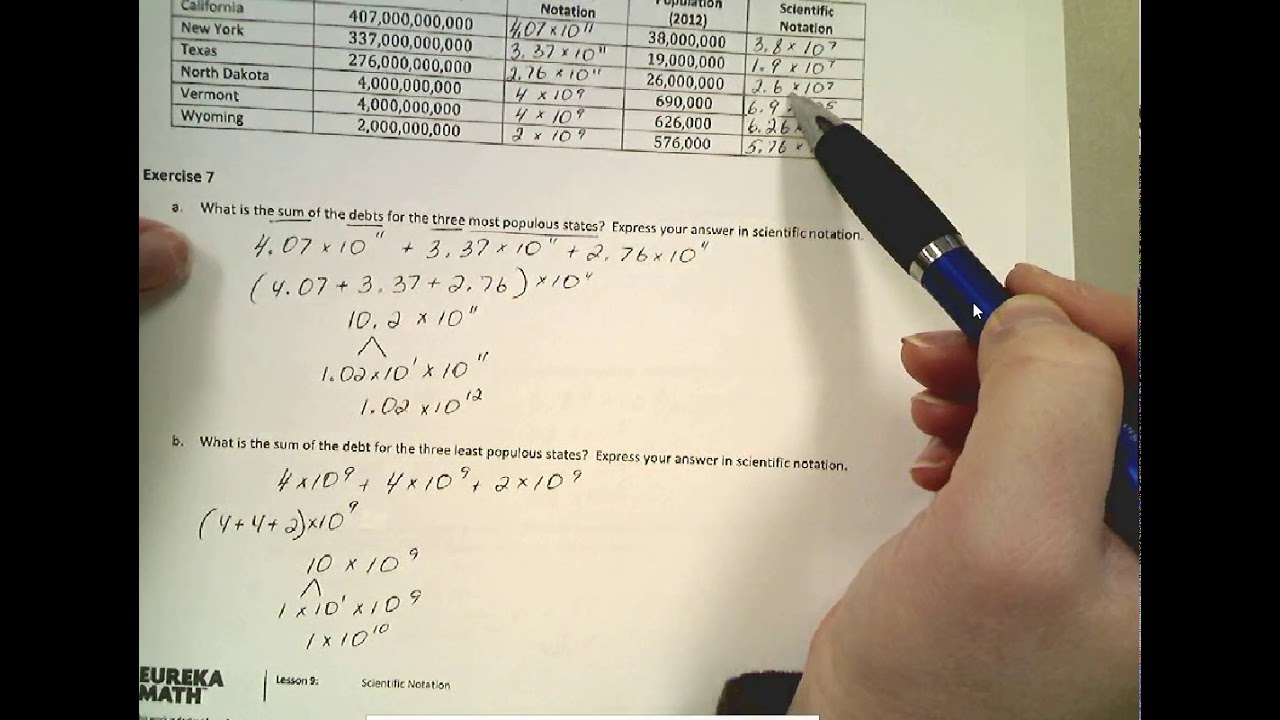 Notation Population (2012) Scientific Notation
California 407,000,000,000 4.07 × 10¹¹ 38,000,000 3.8 × 10⁷
New York 337,000,000,000 3.37 × 10¹¹ 19,000,000 1.9 × 10⁷
Texas 276,000,000,000 2.76 × 10¹¹ 26,000,000 2.6 × 10⁷
North Dakota 4,000,000,000 4 × 10⁹ 690,000 6.9
Vermont 4,000,000,000 4 × 10⁹ 626,000 6.26 ×
Wyoming 2,000,000,000 2 × 10⁹ 576,000 5.76 ×
Exercise 7
a. What is the sum of the debts for the three most populous states? Express your answer in scientific notation.
4.07 × 10¹¹ + 3.37 × 10¹¹ + 2.76 × 10¹¹
(4.07 + 3.37 + 2.76) × 10¹¹
10.2 × 10¹¹
1.02 × 10¹ × 10¹¹
1.02 × 10¹²
b. What is the sum of the debt for the three least populous states? Express your answer in scientific notation.
4 × 10⁹ + 4 × 10⁹ + 2 × 10⁹
(4 + 4 + 2) × 10⁹
10 × 10⁹
1 × 10¹ × 10⁹
1 × 10¹⁰
EUREKA MATH™
Lesson 9: Scientific Notation